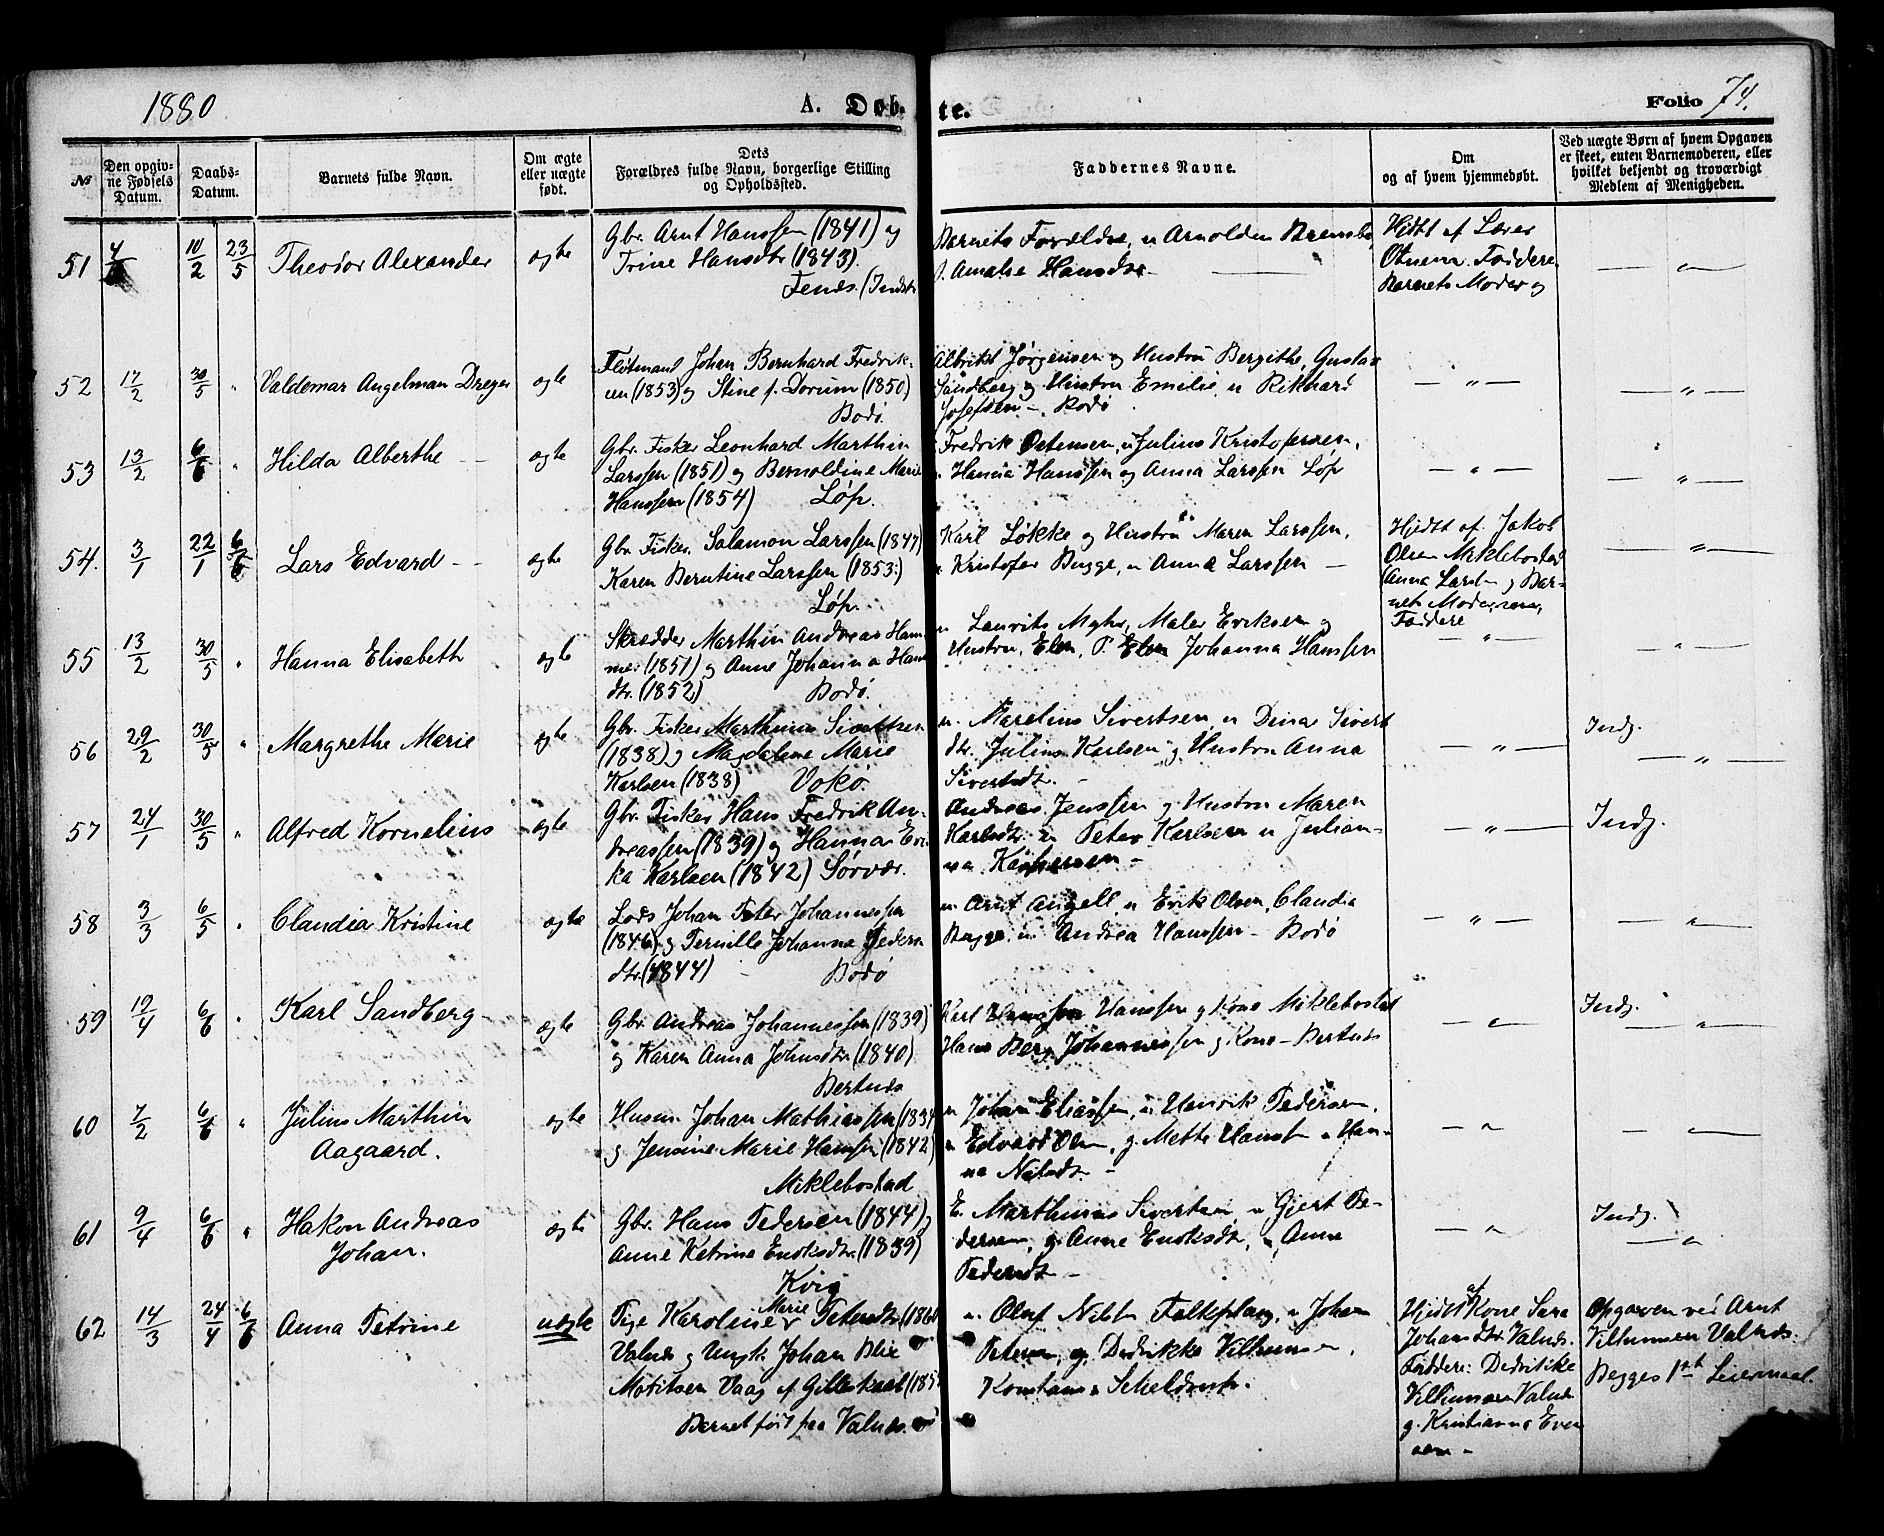 1880
A. Døbte.
Folio 74.
№
Den opgivne Fødsels Datum.
Daabs-Datum.
Barnets fulde Navn.
Om ægte eller uægte født.
Dets Forældres fulde Navn, borgerlige Stilling og Opholdssted.
Faddernes Navne.
Om og af hvem hjemmedøbt.
Ved uægte Børn af hvem Opgaven er skeet, enten Barnemoderen, eller hvilket bekjendt og troværdigt Medlem af Menigheden.
51 10/2 23/5 Theodor Alexander ægte
Gbr. Arnt Hanssen (1841) og
Trine Hansdtr (1843).
Barnets Forældre, u Arnoldus
P. Amalie Hansdtr
Hjdt af Lærer
Faddere
Barnets Moder og
52 17/2 30/5 " Valdemar Angelman Dreyer ægte
Flødmand Johan Bernhard Fredrik-
sen (1853) og Stine f. Dorum (1850)
Bodø
Albrikt Jørgensen og Hustru Bergithe, Gustav
Sandberg og Hustru Emilie, u Rikhard
Josefsen -, Bodø
53 13/2 6/6 " Hilda Alberthe ægte
Gbr. Fisker Leonhard Marthin
Larssen (1851) og Bernoldine Marie
Hanssen (1854) Løp.
Fredrik Petensen, u Julius Kristofersen,
Hanna Hanssen og Anna Larssen Løp
54. 3/1 22/1 6/6 Lars Edvard ægte
Gbr. Fisker. Salamon Larssen (1847)
Karen Berntine Larssen (1853)
Løp.
Karl Løkke og Hustru Maren Larssen,
u Kristofer Bugge, u Anna Larssen
Hjdt af Jakob
Olsen Miklebostad
(Anna Larssen og Bar-
nets Moder vare
Faddere
55 13/2 30/5 " Hanna Elisabeth ægte
Skrædder Marthin Andreas Ham-
mer (1851) og Anne Johanna Hans
dtr. (1852) Bodø.
u Laurits Myhr, Maler Eriksen og
Hustru, Elen, P. Elen Johanna Hanssen
56 29/2 30/5 " Margrethe Marie ægte
Gbr. Fisker Marthinus Sivertsen
(1838) og Magdalene Marie
Karlsen (1838)
u. Marelius Sivertsen, u Dina Sivert
dtr. Julius Karlsen og Hustru Anna
Sivertsdt.
Indj.
57 24/1 30/5 " Alfred Kornelius ægte
Gbr. Fisker Hans Fredrik An-
dreassen (1839) og Hanna Eri-
ka Karlsen (1842) Sørvær.
Andreas Jenssen og Hustru Maren
Karlsdtr. u Peter Karlsen u Julian-
na
Indj.
58 3/3 6/5 " Claudia Kristine ægte
Lods Johan Peter Johannessen
(1846) og Pernille Johanne Peders
dtr. (1844) Bodø
u Arnt Angell, u Erik Olsen, Claudia
Bugge, u. Andrea Hanssen - Bodø
59 19/4 6/6 " Karl Sandberg ægte
Gbr. Andreas Johannessen (1839)
og Karen Anna Johnsdtr (1840)
Bertnes
Karl Hanssen og Kone Miklebostad
Hans Berg Johannessen og Kone - Bertnes
Indj.
60 7/2 6/6 " Julius Marthin
Aagaard. ægte
Husm. Johan Mathiassen (1834
og Jensine Marie Hanssen (1842)
Miklebostad
u Johan Eliassen, u Henrik Pedersen,
u Edvard Olsen, og Mette Hansd u Han-
na Nilsdt.
61 9/4 6/6 " Hakon Andreas
Johan. ægte
Gbr. Hans Pedersen (1844) og
Anne Katrine Enoksdtr. (1839)
Kvig
E. Marthinus Sivertsen, u Gjert Pe-
dersen, og Anne Enoksdtr, u Anne
Pedersdt
Indj.
62 14/3 24/4 6/6 Anna Petrine uægte
Pige Karoline Marie Petersdtr (186
Valnes og Ungk. Johan Blix
Motitsen Vaag af Gilleskaal (185
Barnet født paa Valnes.
u Oluf Nilsen Falkflaug, u Johan
Petersen, og Dedrikke Vilhumsen,
Hjdt af Kone Sara
Johansdtr Valnes.
Faddere: Dedrikke
Vilhumsen Valnes
og Kristianna Even
sen
Opgaven ved Arnt
Vilhumsen Valnes.
Begges 1st Leiermaal.